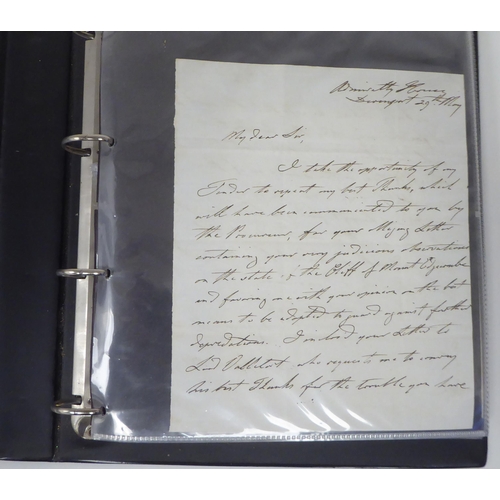 Admiralty House
Devonport 29th May
My dear Sir,
I take the opportunity of my
Tender to repeat my best Thanks, which
will have been communicated to you by
the for your Letter
containing your very judicious observations
on the state of the Cliff of Mount Edgcumbe
and favoring me with your opinion on the best
means to be adopted to guard against further
depredations. I your Letter to
Lord Valletort who requests me to convey
his best Thanks for the trouble you have